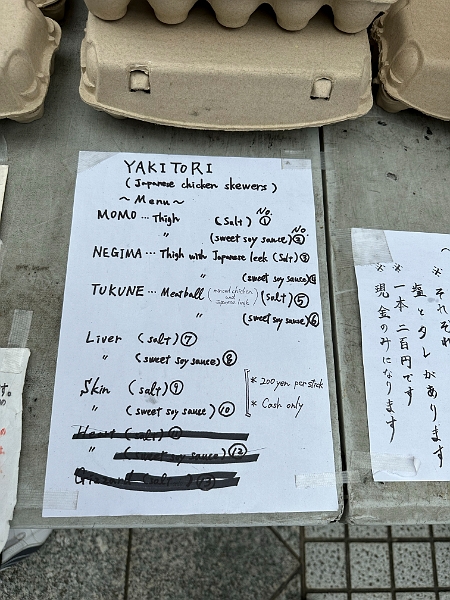 YAKITORI
(Japanese chicken skewers)
~ Menu ~
MOMO … Thigh (Salt) No. ①
〃 (sweet soy sauce) No. ②
NEGIMA … Thigh with Japanese leek (Salt) ③
〃 (sweet soy sauce) ④
TUKUNE … Meatball (minced chicken and Japanese leek) (salt) ⑤
〃 (sweet soy sauce) ⑥
Liver (salt) ⑦
〃 (sweet soy sauce) ⑧
Skin (salt) ⑨
〃 (sweet soy sauce) ⑩
* 200 yen per stick
* Cash only
Heart (salt) ⑪
〃 (sweet soy sauce) ⑫
(salt)
※ それぞれ
塩とタレがあります
※ 一本 二百円です
※ 現金のみになります
す。